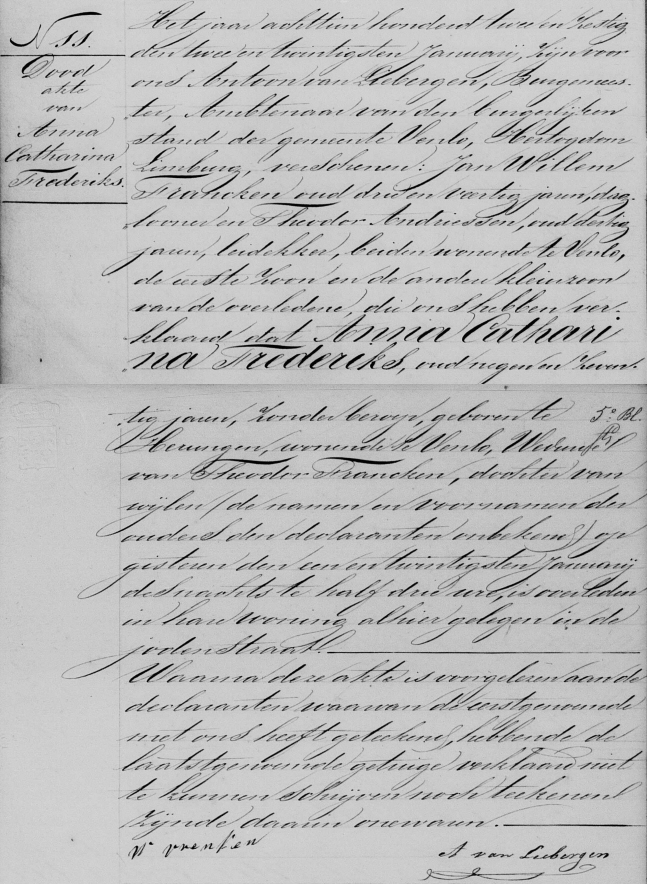 N 11.
Dood
akte
van
Anna
Catharina
Frederiks.
Het jaar achttien honderd twee en zestig
den twee en twintigsten Januarij, zijn voor
ons Antoon van Liebergen, Burgemees-
ter, Ambtenaar van den burgerlijken
stand der gemeente Venlo, Hertogdom
Limburg, verschenen: Jan Willem
Francken oud drie en veertig jaren, dag-
looner en Theodor Andriessen, oud dertig
jaren, leidekker, beiden wonende te Venlo,
de eerste zoon en de andere kleinzoon
van de overledene, die ons hebben ver-
klaard, dat Anna Cathari
na Frederiks, oud negen en zeven-
tig jaren, zonder beroep, geboren te
5e Bl.
Herungen, wonende te Venlo, Weduwe
van Theodor Francken, dochter van
wijlen (de namen en voornamen der
ouders den declaranten onbekend) op
gisteren den een en twintigsten Januarij
des nachts te half drie ure, is overleden
in hare woning alhier gelegen in de
joden Straat.
Waarna deze akte is voorgelezen aan de
declaranten waarvan de eerstgenoemde
met ons heeft geteekend, hebbende de
laatstgenoemde getuige verklaard niet
te kunnen schrijven noch teekenen
zijnde daarin onervaren.
A van Liebergen